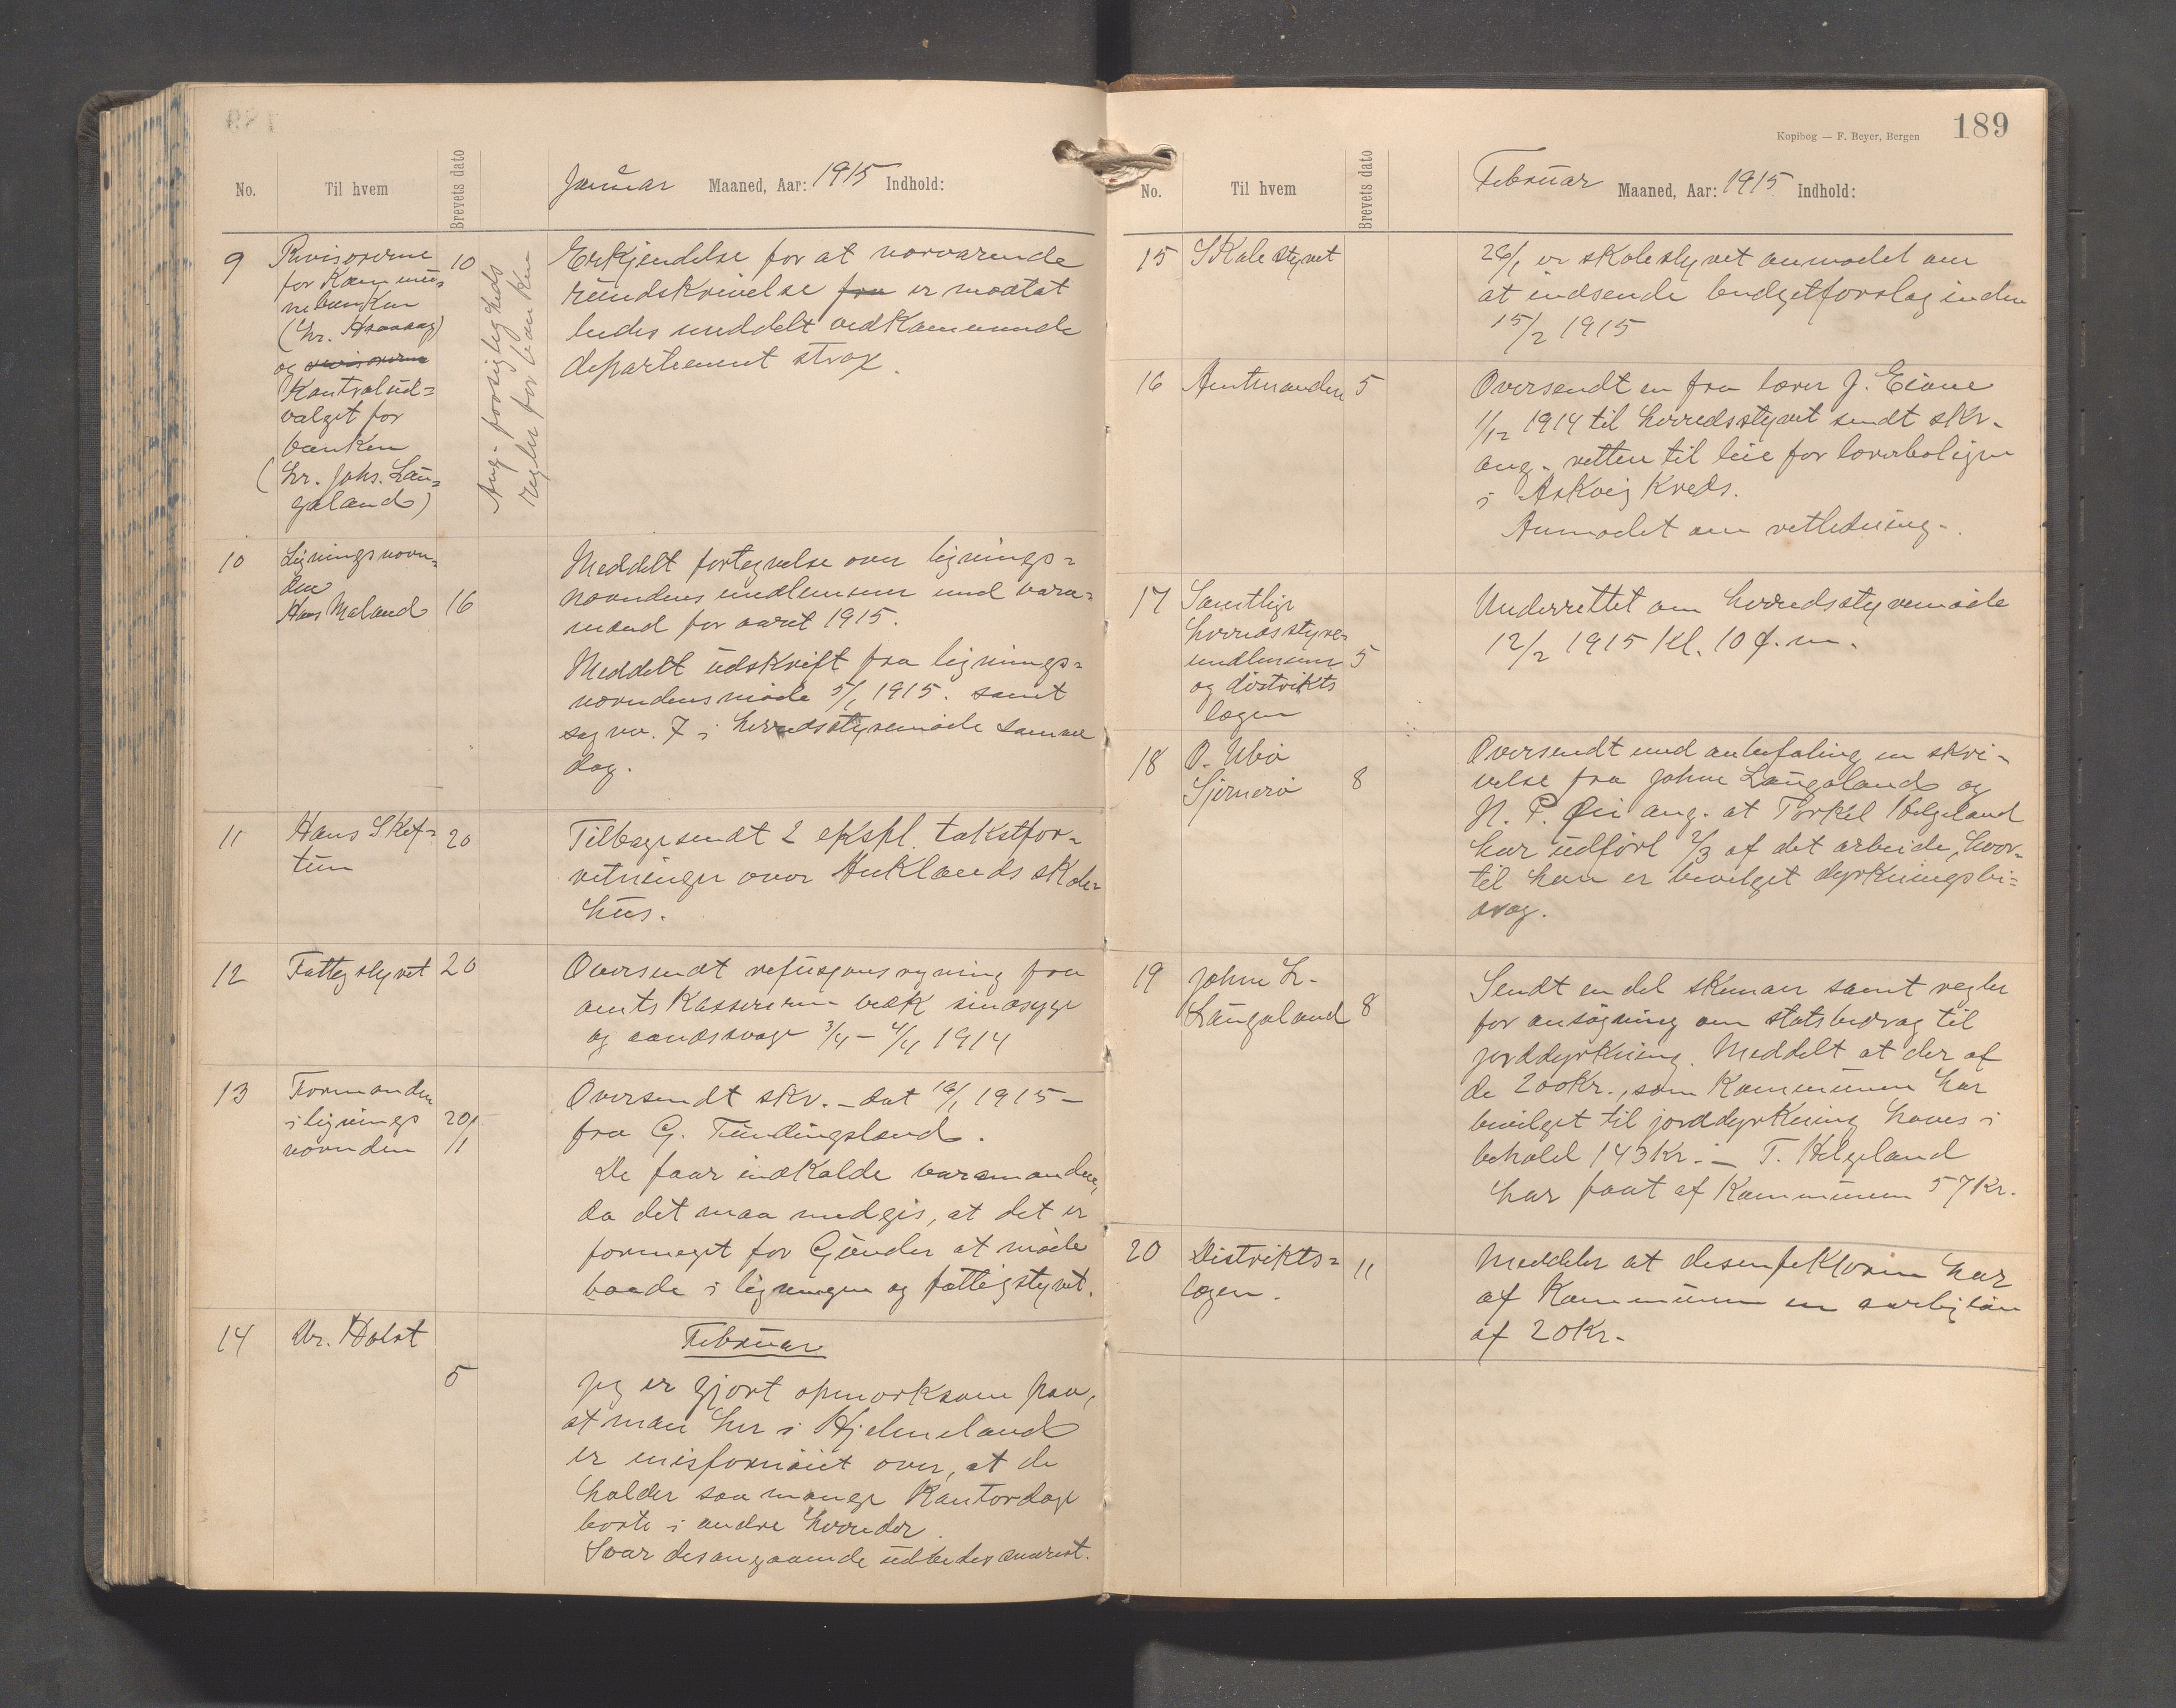 No.
Til hvem
Brevets dato
Januar Maaned, Aar: 1915 Indhold:
9
Revisorerne
for Kommu-
nebanken
(hr. Haaaag)
og revisorerne
Kontrolud=
valget for
banken
(hr. Johs. Lau=
galand)
10
Ang. forsigtigheds
regler for banken
Erkjendelse for at nærværende
rundskrivelse fra er mottat
bedes meddelt ved Kommunde
departement strax.
10
Ligningsnævn=
den
Hans Meland
16
Meddelt fortegnelse over lignings=
nævndens medlemmer med vara=
mænd for aaret 1915.
Meddelt udskrift fra lignings=
nævndens møde 5/1 1915. samt
sag nr. 7 i herredsstyremøde samme
dag.
11
Hans Skif=
tun
20
Tilbagesendt 2 ekspl. takstfor-
retninger over Auklands skole=
hus.
12
Fattigstyret
20
Oversendt refusjonsregning fra
amtskassereren vedk sindssyge
og aandssvage 3/4 - 4/4 1914
13
Formanden
i lignings
nævnden
20/1
11
Oversendt skr. - dat 16/1 1915 -
fra G. Tundingsland.
De faar indkalde varamanden,
da det maa medgis, at det er
formeget for Gunder at møde
baade i ligningen og fattigstyret.
14
Dr. Holst
5
Februar
Jeg er gjort opmerksom paa,
at man her i Hjelmeland
er misfornøiet over, at de
holder saa mange Kontordage
borte i andre herreder.
Svar desangaaende udbedes snarest.
189
Kopibog — F. Beyer, Bergen
No.
Til hvem
Brevets dato
Februar Maaned, Aar: 1915 Indhold:
15
Skolestyret
26/1 er skolestyret anmodet om
at indsende budgetforslag inden
15/2 1915
16
Amtmanden
5
Oversendt en fra lærer J. Eiane
1/12 1914 til herredsstyret sendt skr.
ang. retten til leie for lærerboligen
i Askvig Kreds.
Anmodet om vetledning.
17
Samtlige
herredsstyre=
medlemmer
og distrikts
lægen
5
Underrettet om herredsstyremøde
12/2 1915 Kl. 10 f.m.
18
O. Ubø
Sjernerø
8
Oversendt med anbefaling en skri-
velse fra Johne Laugaland og
N. P. Øie ang. at Torkel Helgeland
har udført 2/3 af det arbeide, hvor-
til han er bevilget dyrkningsbi=
drag.
19
Johne L.
Laugaland
8
Sendt en del skemaer samt regler
for ansøgning om statsbidrag til
jorddyrkning. Meddelt at der af
de 200 Kr., som Kommunen har
bevilget til jorddyrkning haves i
behold 143 Kr. - T. Helgeland
har faat af Kommunen 57 Kr.
20
Distrikts=
lægen.
11
Meddeler at desenfektøren har
af Kommunen en aarlig løn
af 20 Kr.